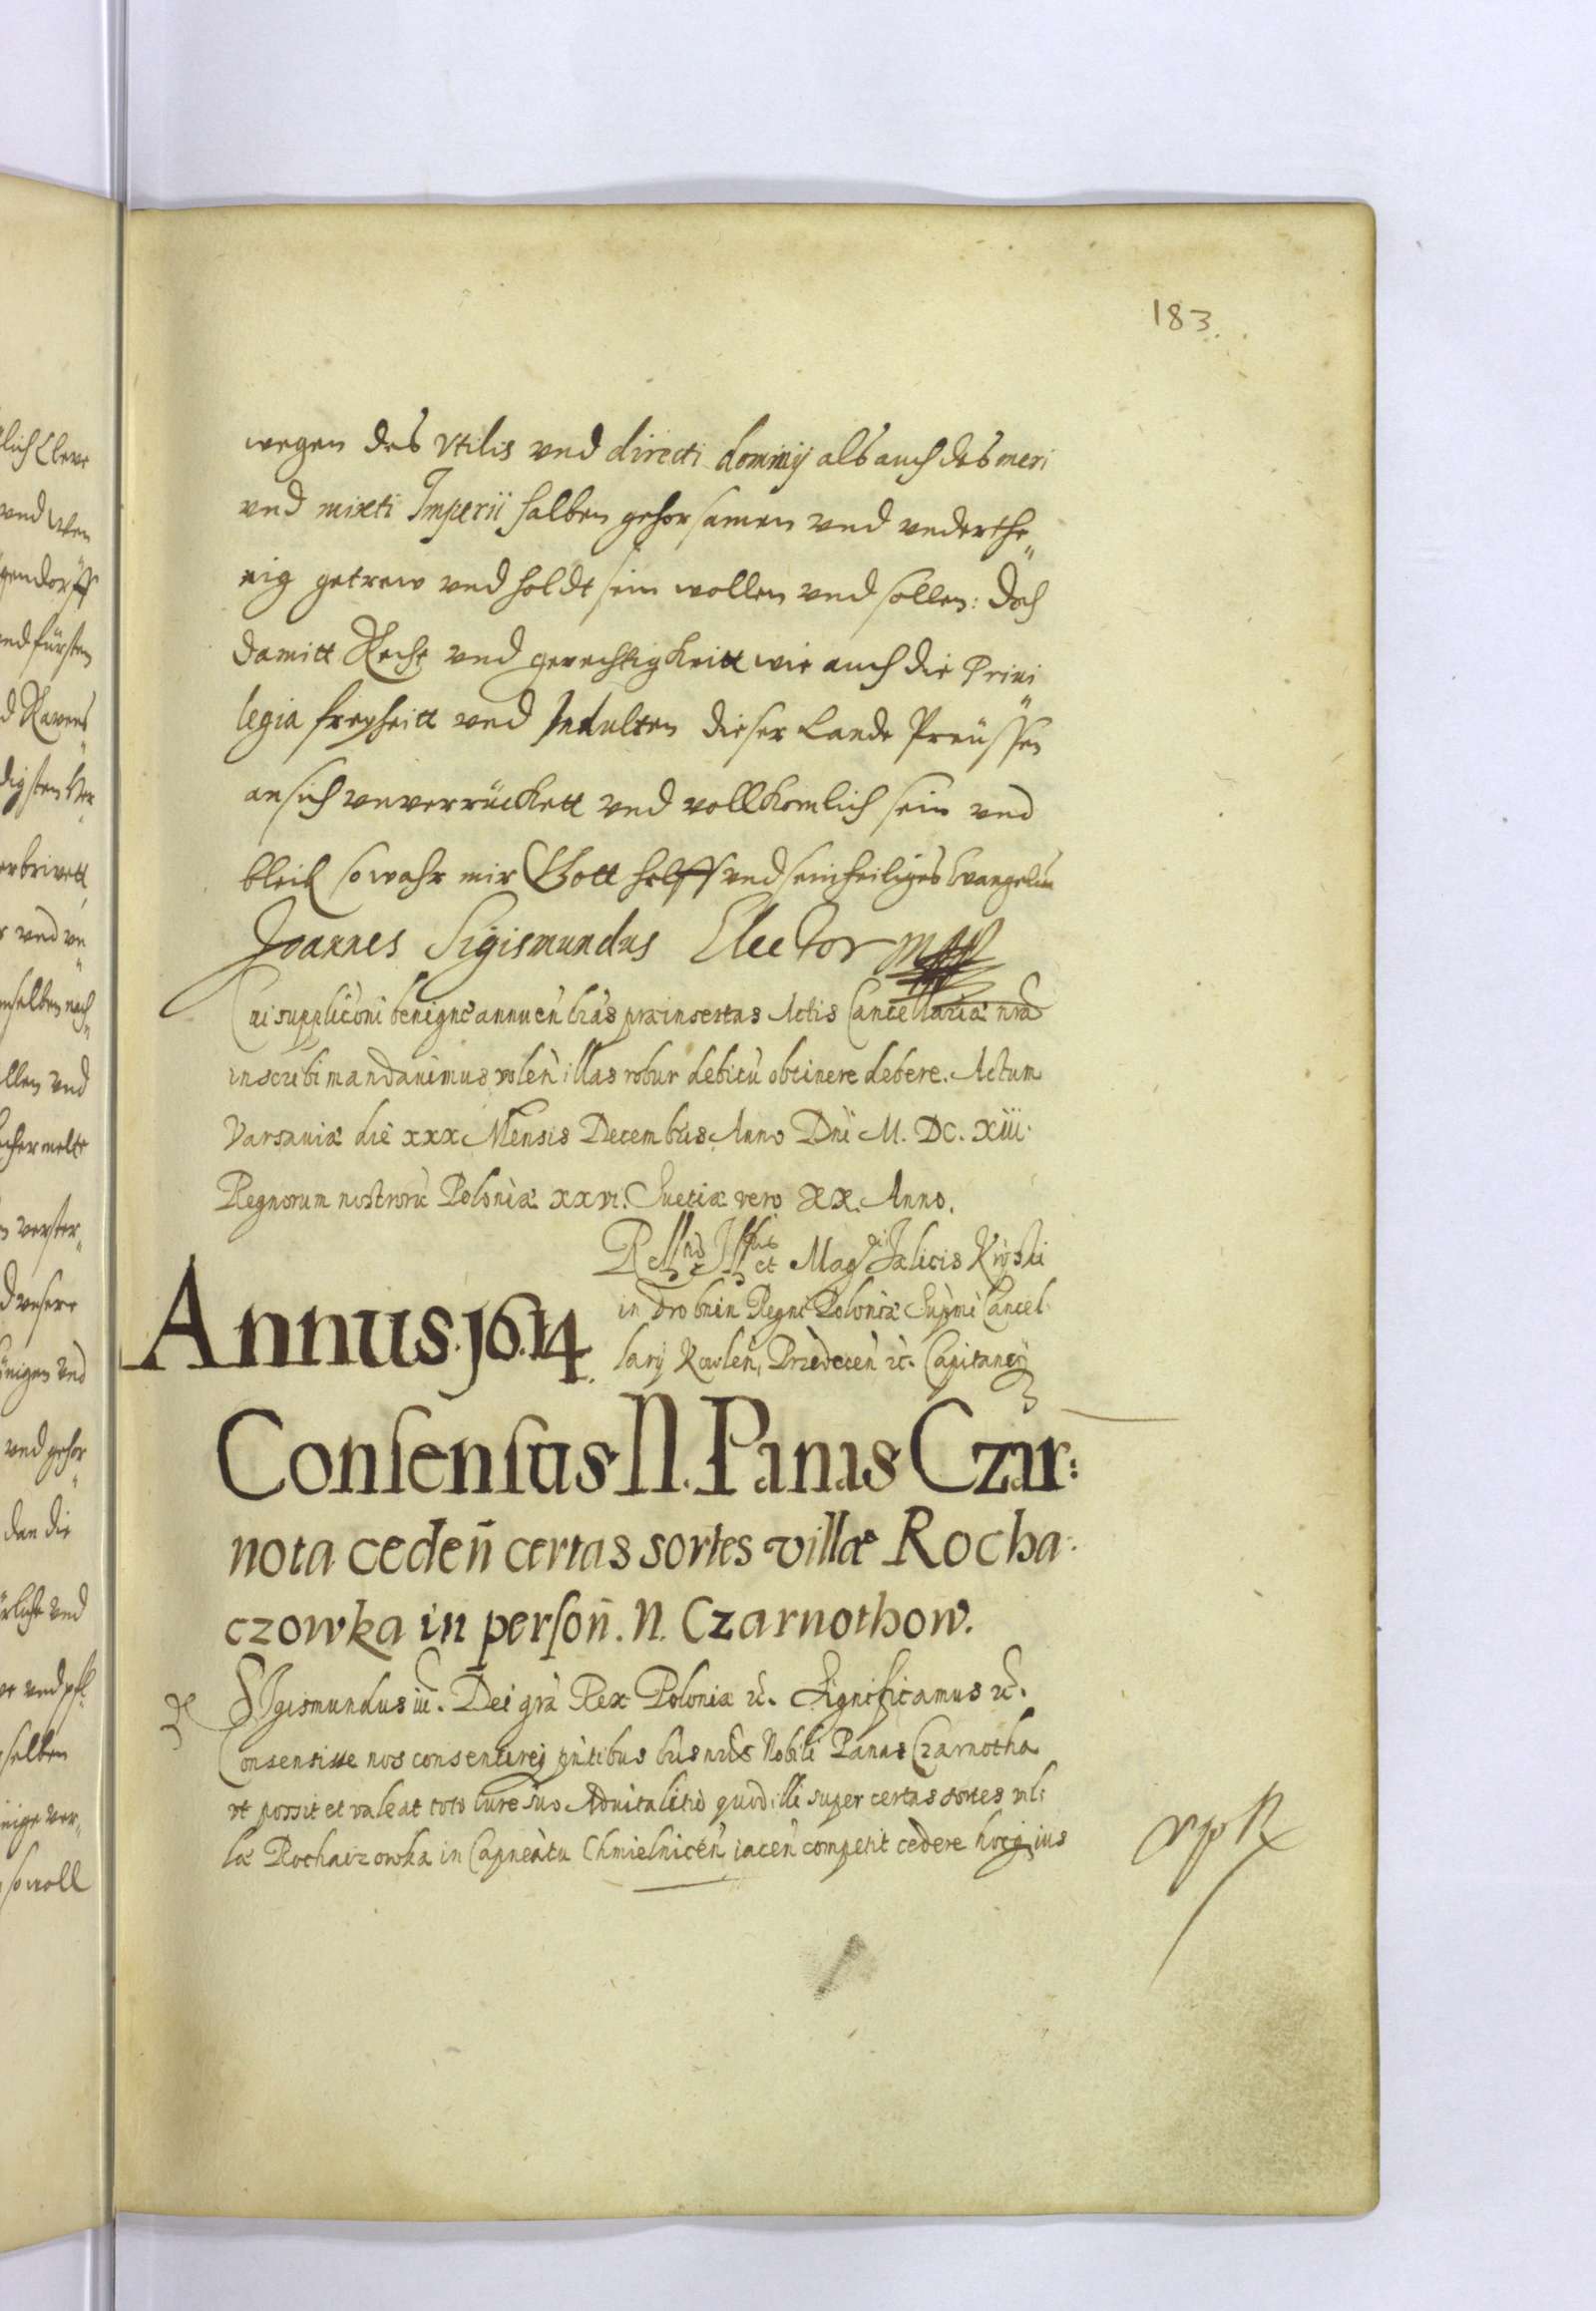 183.
wegen des Vtilis vnd directi dominij als auch des meri
vnd mixti Imperii halben gehorsamen vnd vnderthe„
nig getrew vnd holdt sein wollen vnd sollen: doch
damitt Recht vnd gerechtigkeitt wie auch die Priui„
legia freyheitt vnd Indulten dieser Lande Preüssen
an sich vnverrückett vnd vollkomlich sein vnd
bleib so wahr mir Gott helff vnd sein heiliges Evangelium
Joannes Sigismundus Elector mpp
Cui supplicõni benignè annuen̄ l̃ras præinsertas Actis Cancellariæ nr̃æ
inscribi mandauimus volen̄ illas robur debitũ obtinere debere. Actum
Varsauiæ die xxx Mensis Decembris Anno Dn̄i M. DC. XIII.
Regnorum nostrorũ Poloniæ xxvi. Suetiæ vero XX. Anno.
et Mag Fælicis Kryski
in Drobnin Regni Poloniæ Supmi Cancel
larij Kowlen̄, Przedecen̄ ec̃. Capitanei
Annus. 1614.
Consensus N. Panas Czar:
nota ceden̄ certas sortes villæ Rocha:
czowka in person̄. N. Czarnothow.
SIgismundus iii. Dei grã Rex Poloniæ ec̃. Significamus ec̃.
Consensisse nos consentireq̃ pñtibus l̃ris nr̃is Nobili Panas Czarnotha
vt possit et valeat toto iure suo Aduitalitio quod illi super certas sortes vil:
læ Rochaczowka in Capneatu Chmielnicen̄ iacen̄ competit cedere hocq̃ ius